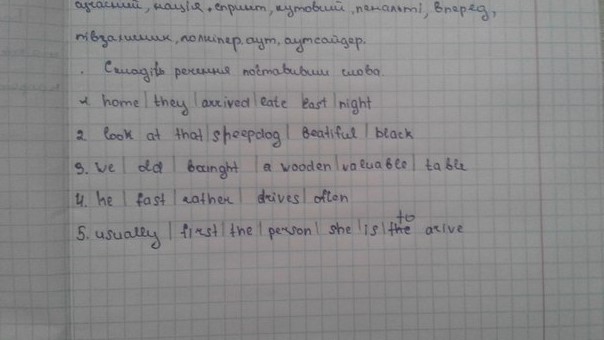 нація, спринт, кутовий, пенальті, вперед,
півзахисник, голкіпер, аут, аутсайдер.
. Складіть речення поставивши слова.
1. home | they | arrived | late last | night
2. look at that | sheepdog | Beatiful | black
3. we | old | bainght | a wooden | valuable | table
4. he | fast | rather | drives | often
to
5. usually | first | the | person | she | is | the arive